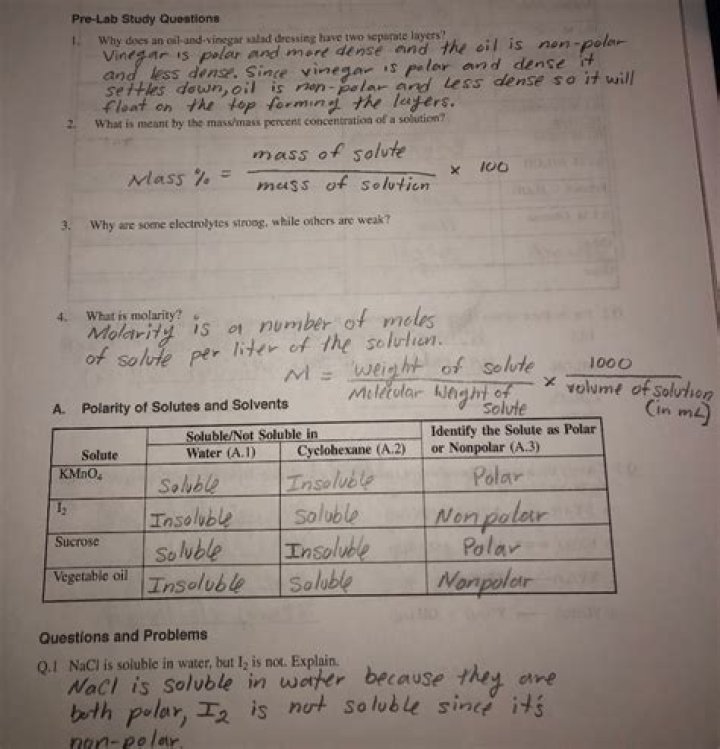 Pre-Lab Study Questions
1. Why does an oil-and-vinegar salad dressing have two separate layers?
Vinegar is polar and more dense and the oil is non-polar
and less dense. Since vinegar is polar and dense it
settles down, oil is non-polar and less dense so it will
float on the top forming the layers.
2. What is meant by the mass/mass percent concentration of a solution?
Mass % = mass of solute / mass of solution x 100
3. Why are some electrolytes strong, while others are weak?
4. What is molarity?
Molarity is a number of moles
of solute per liter of the solution.
M = weight of solute / Molecular Weight of solute x 1000 / volume of solution (in mL)
A. Polarity of Solutes and Solvents
Soluble/Not Soluble in
Solute Water (A.1) Cyclohexane (A.2) Identify the Solute as Polar or Nonpolar (A.3)
KMnO₄ Soluble Insoluble Polar
I₂ Insoluble Soluble Nonpolar
Sucrose Soluble Insoluble Polar
Vegetable oil Insoluble Soluble Nonpolar
Questions and Problems
Q.1 NaCl is soluble in water, but I₂ is not. Explain.
NaCl is soluble in water because they are
both polar, I₂ is not soluble since it's
non-polar.